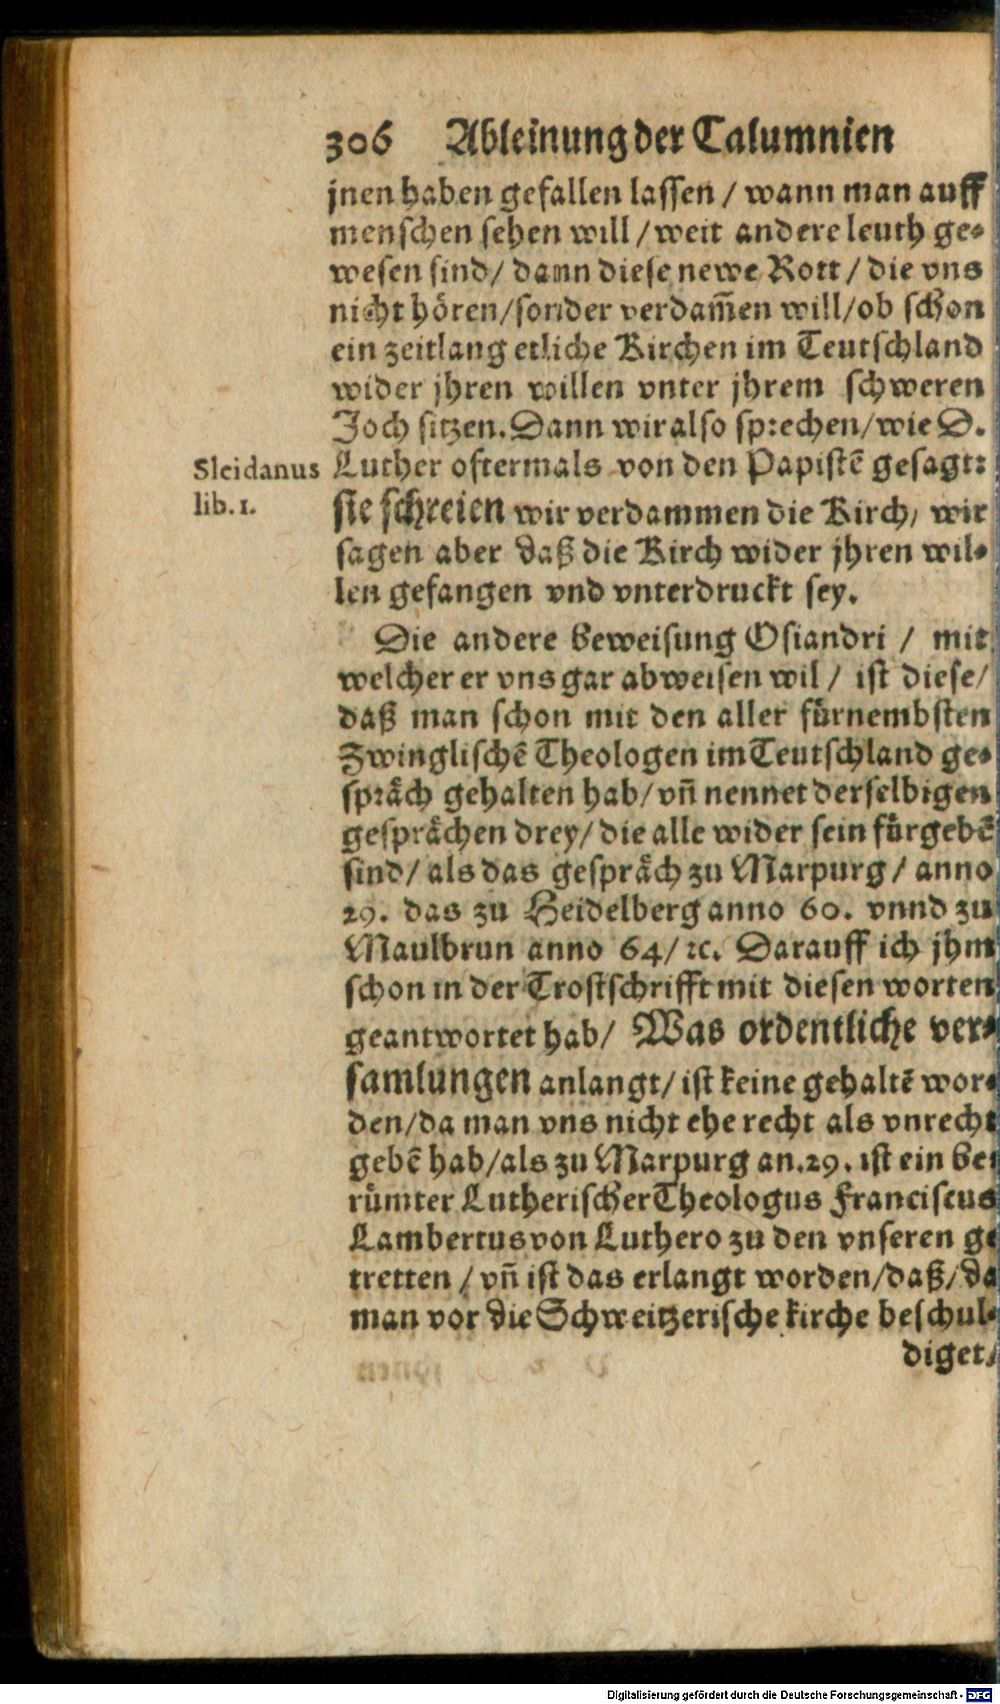 306 Ableinung der Calumnien
jnen haben gefallen lassen / wann man auff
menschen sehen will / weit andere leuth ge-
wesen sind / dann diese newe Rott / die vns
nicht hören / sonder verdam̃en will / ob schon
ein zeitlang etliche Kirchen im Teutschland
wider jhren willen vnter jhrem schweren
Joch sitzen. Dann wir also sprechen / wie D.
Sleidanus
lib. 1.
Luther oftermals von den Papistẽ gesagt:
sie schreien wir verdammen die Kirch / wir
sagen aber daß die Kirch wider jhren wil-
len gefangen vnd vnterdruckt sey.
Die andere beweisung Osiandri / mit
welcher er vns gar abweisen wil / ist diese /
daß man schon mit den aller fürnembsten
Zwinglischẽ Theologen im Teutschland ge-
spräch gehalten hab / vñ nennet derselbigen
gesprächen drey / die alle wider sein fürgebẽ
sind / als das gespräch zu Marpurg / anno
29. das zu Heidelberg anno 60. vnnd zu
Maulbrun anno 64 / ꝛc. Darauff ich jhm
schon in der Trostschrifft mit diesen worten
geantwortet hab / Was ordentliche ver-
samlungen anlangt / ist keine gehaltẽ wor-
den / da man vns nicht ehe recht als vnrecht
gebẽ hab / als zu Marpurg an. 29. ist ein be-
rümter Lutherischer Theologus Franciscus
Lambertus von Luthero zu den vnseren ge
tretten / vñ ist das erlangt worden / daß / da
man vor die Schweitzerische kirche beschul-
diget /
Digitalisierung gefördert durch die Deutsche Forschungsgemeinschaft - DFG